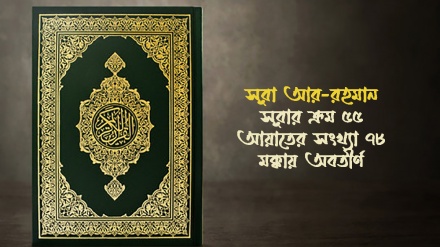 القرآن الكريم
সূরা আর-রহমান
সূরার ক্রম ৫৫
আয়াতের সংখ্যা ৭৮
মক্কায় অবতীর্ণ